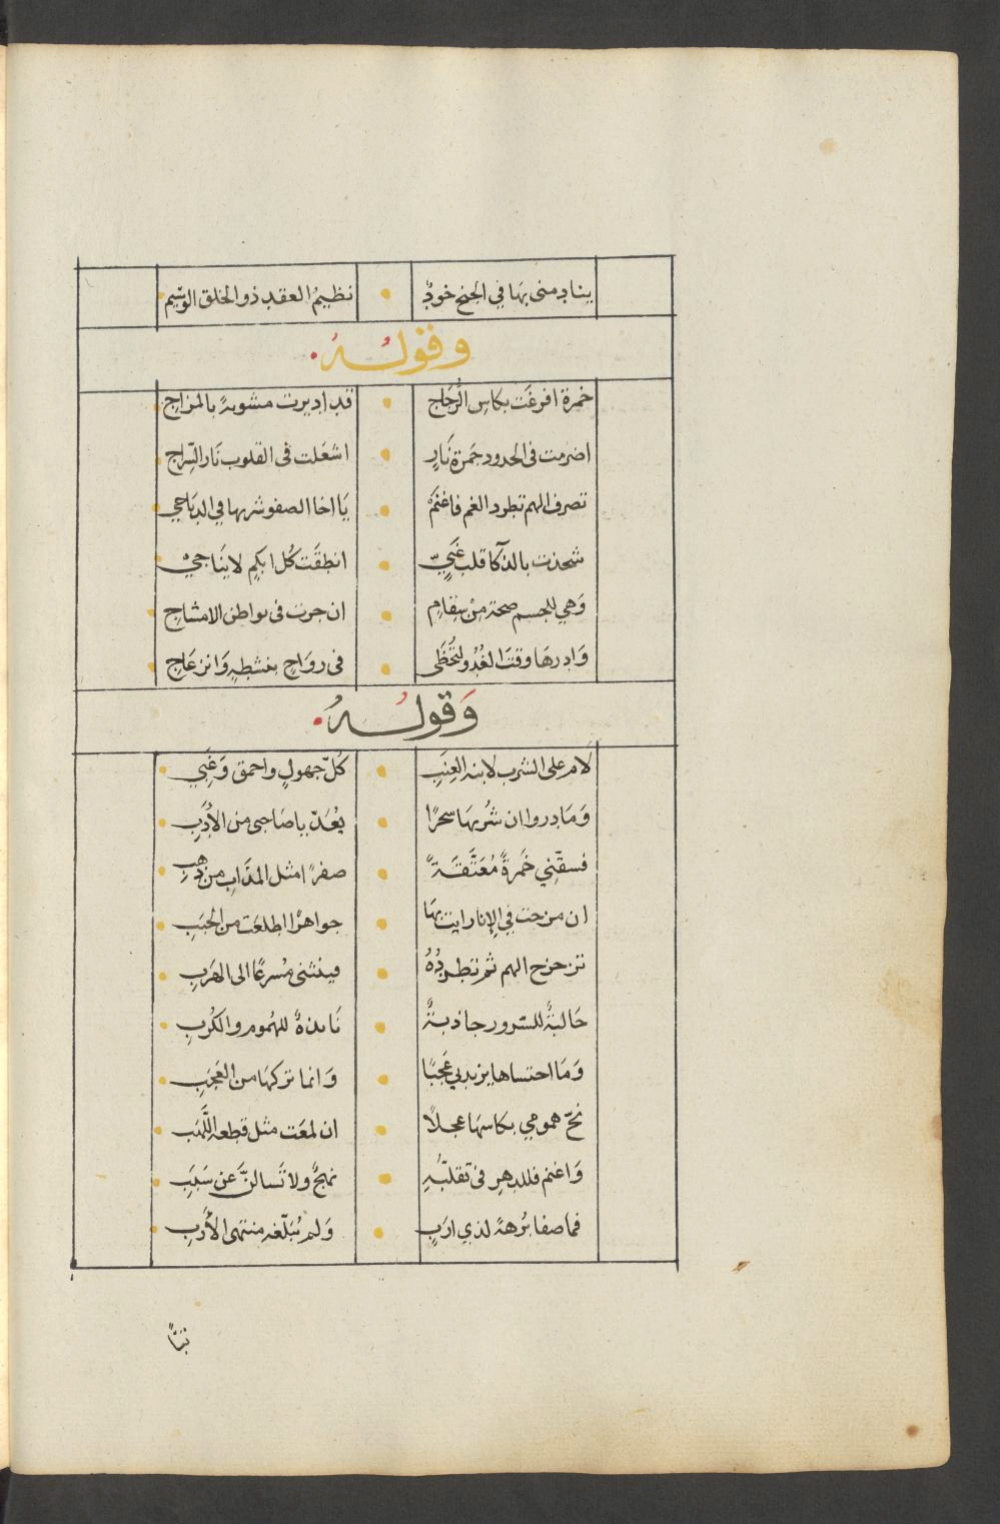 ينادمني بها في الجنح خودٌ • نظيمُ العقد ذو الخلق الوسيم
وقولهُ
خمرة افرغَت بكاس الزجَاج • قد اديرت مشوبةً بالمزاج
اضرمت في الخدود جَمرة نَارٍ • اشعَلت في القلوب نَار السّراج
تصرف الهم تطرد الغم فاغنَمْ • يَا اخا الصفو شربها في الدياجي
شحذت بالذكا قلب غَبيّ • انطقَت كُل ابكم لا ينَاجيْ
وَهي للجسم صحة مِنْ سِقام • ان جرت في بواطن الامشاج
وَادرهَا وقتَ الغُدُو لتُحْظَى • في روَاحٍ بنشطةٍ وَانزعَاجِ
وَقولهُ
لَام على الشرب لابنة العِنَبِ • كُلّ جهولٍ واحمق وَغَبي
وَمَا دروا ان شُربهَا سحرًا • يُعَدّ يا صَاحبي من الأدَبِ
فسقّنِي خَمرةً مُعَتَّقَةً • صفرًا مثل المذَاب من ذهبِ
ان مزجت في الإنا رايت بهَا • جواهرًا اطلعَت من الحبَبِ
تزحزح الهم ثم تطردُهُ • فينثني مُسرعًا الى الهَربِ
جَالبةٌ للسرور جاذبةٌ • نَابذةٌ للهُموم والكُرَبِ
وَمَا احتساها يزيدني عَجَبًا • وَانما تركهَا من العَجَبِ
نَحّ همومي بكاسهَا عجلًا • ان لمعَت مثل قطعة اللَّهَب
وَاغنم فللدهرِ في تقلّبُهِ • نهجٌ ولا تَسالنّ عن سَبَبِ
فما صفا بُرهةً لذي ارَبٍ • وَلم يُبَلّغه منتهى الأرَبِ
تبًّا